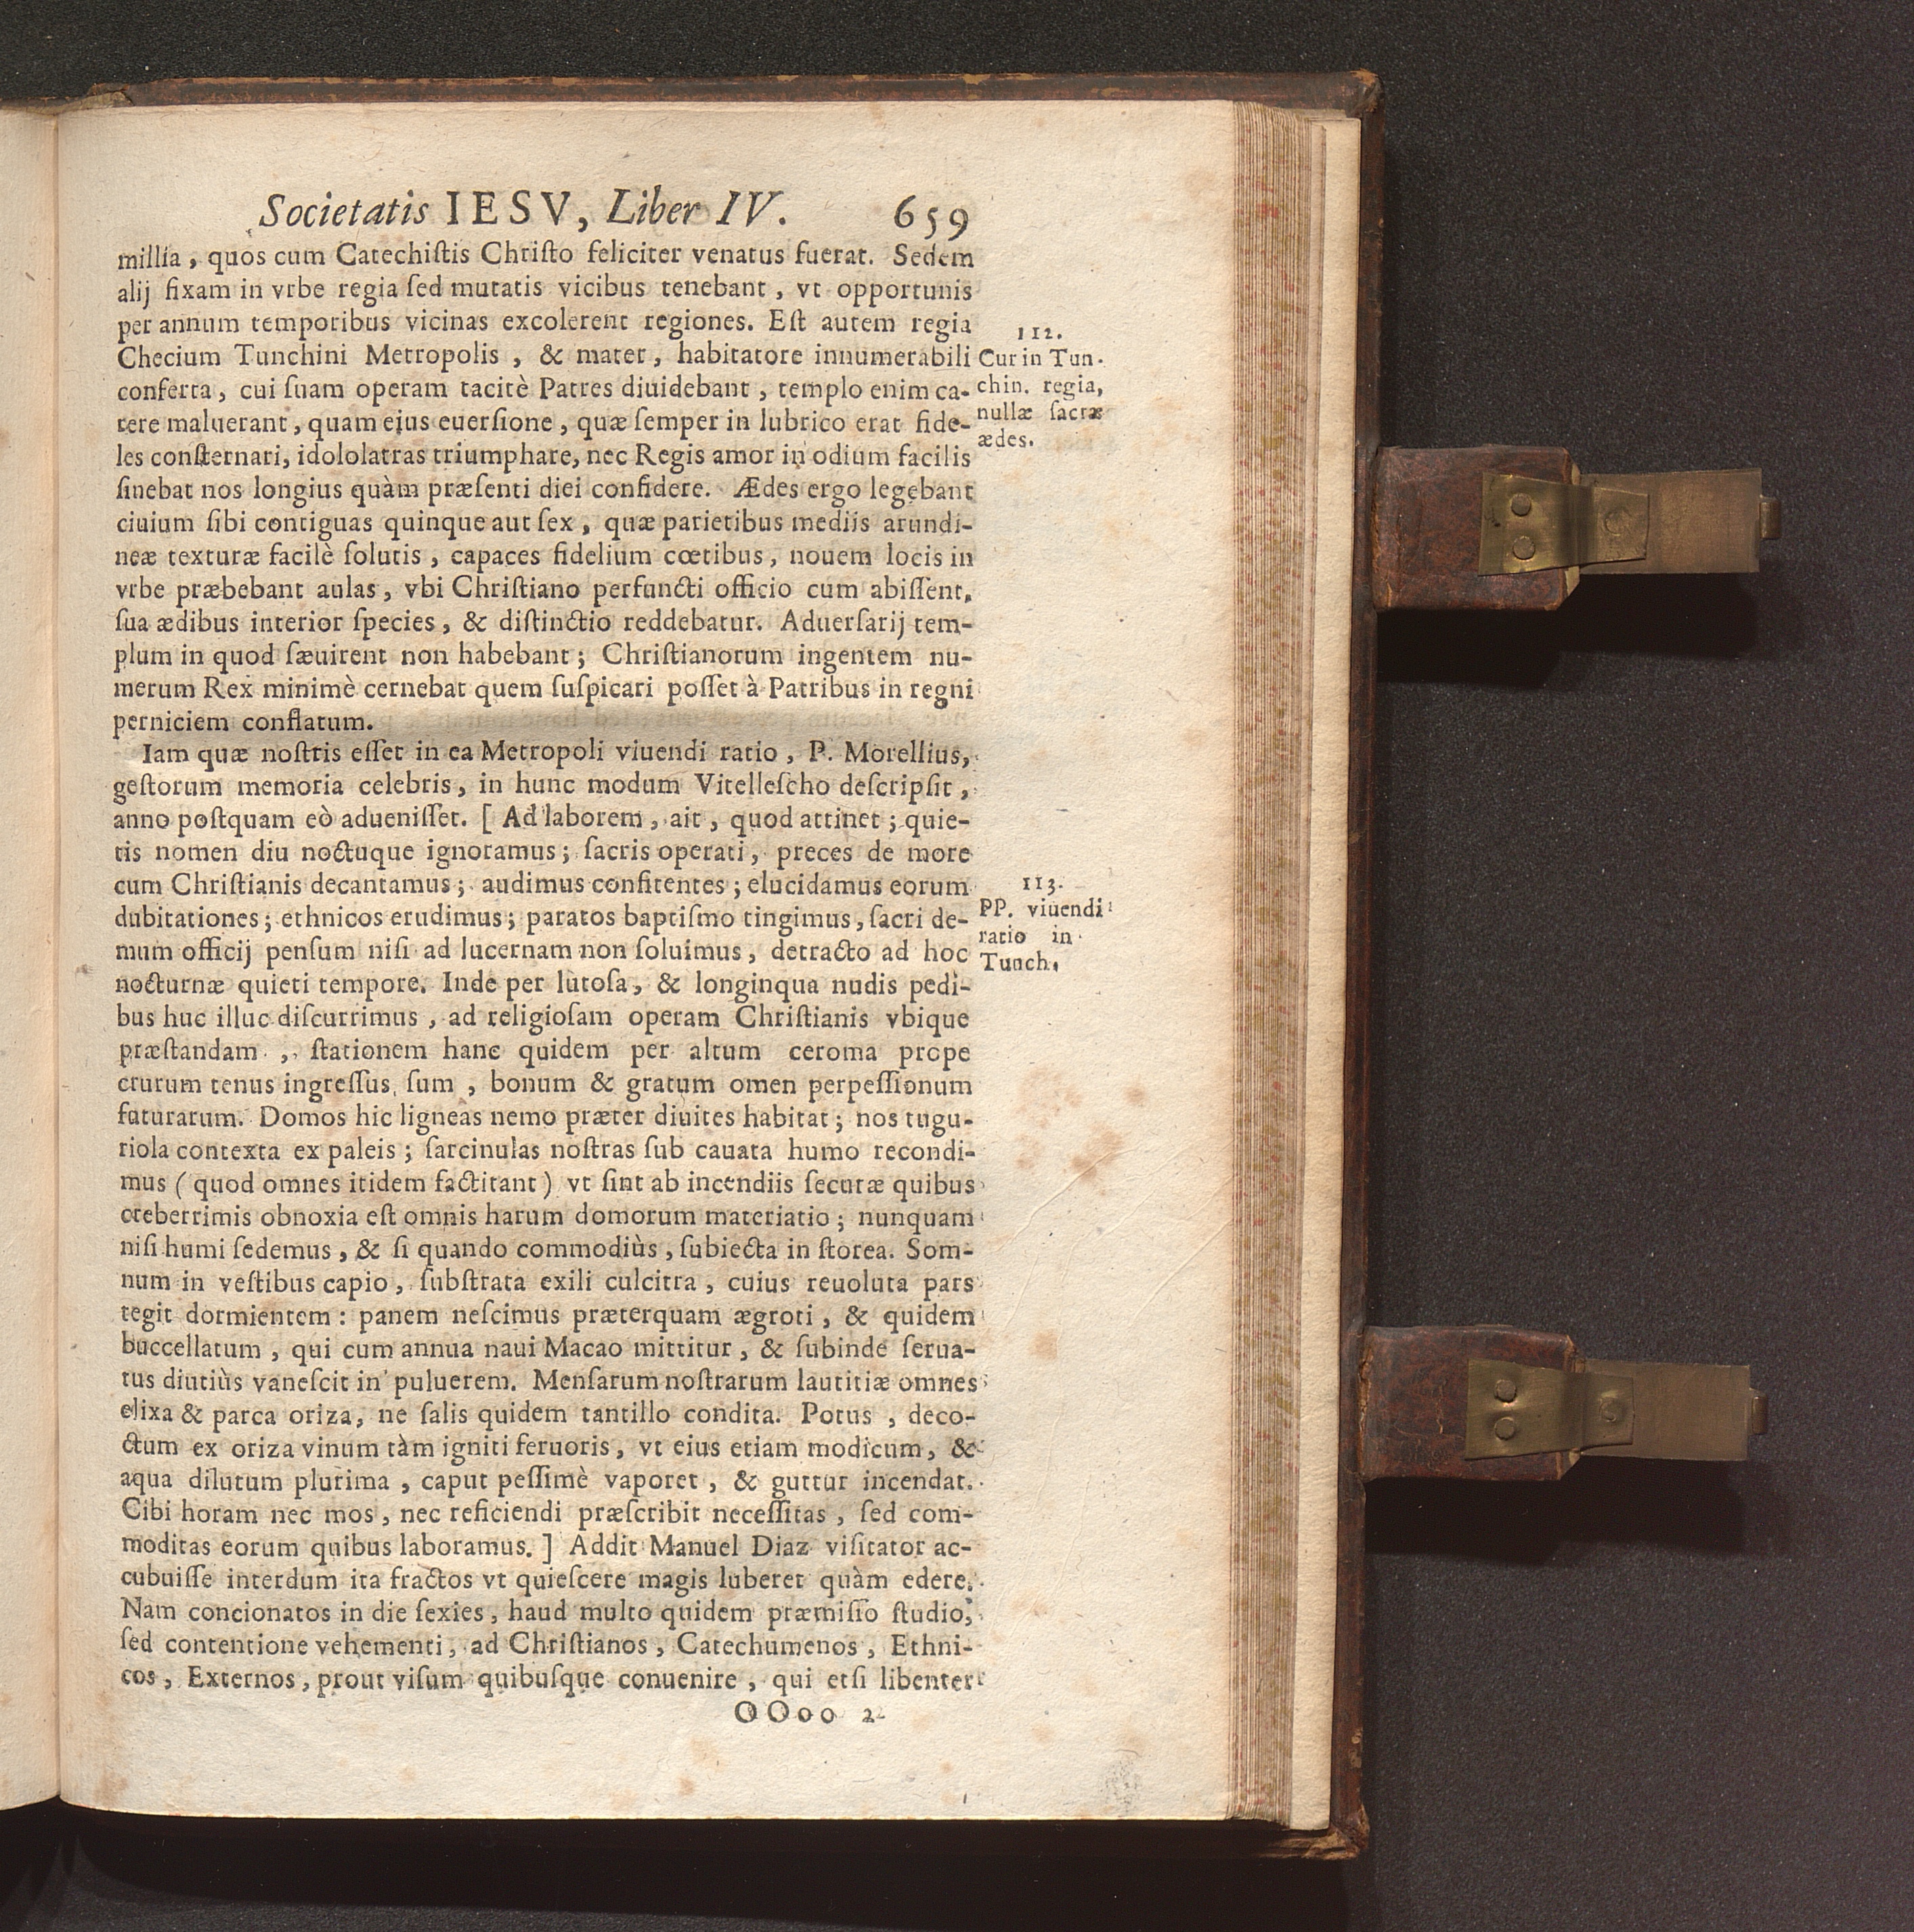 Societatis IESV, Liber IV. 659
millia, quos cum Catechistis Christo feliciter venatus fuerat. Sedem
alij fixam in vrbe regia sed mutatis vicibus tenebant, vt opportunis
per annum temporibus vicinas excolerent regiones. Est autem regia
Checium Tunchini Metropolis, & mater, habitatore innumerabili
conferta, cui suam operam tacitè Patres diuidebant, templo enim ca-
rere maluerant, quam eius euersione, quæ semper in lubrico erat fide-
les consternari, idololatras triumphare, nec Regis amor in odium facilis
sinebat nos longius quàm præsenti diei confidere. Ædes ergo legebant
ciuium sibi contiguas quinque aut sex, quæ parietibus mediis arundi-
neæ texturæ facilè solutis, capaces fidelium cœtibus, nouem locis in
vrbe præbebant aulas, vbi Christiano perfuncti officio cum abissent,
sua ædibus interior species, & distinctio reddebatur. Aduersarij tem-
plum in quod sæuirent non habebant; Christianorum ingentem nu-
merum Rex minimè cernebat quem suspicari posset à Patribus in regni
perniciem conflatum.
112.
Cur in Tun-
chin. regia,
nullæ sacræ
ædes.
Iam quæ nostris esset in ea Metropoli viuendi ratio, P. Morellius,
gestorum memoria celebris, in hunc modum Vitellescho descripsit,
anno postquam eò aduenisset. [ Ad laborem, ait, quod attinet; quie-
tis nomen diu noctuque ignoramus; sacris operati, preces de more
cum Christianis decantamus; audimus confitentes; elucidamus eorum
dubitationes; ethnicos erudimus; paratos baptismo tingimus, sacri de-
mum officij pensum nisi ad lucernam non soluimus, detracto ad hoc
nocturnæ quieti tempore. Inde per lutosa, & longinqua nudis pedi-
bus huc illuc discurrimus, ad religiosam operam Christianis vbique
præstandam, stationem hanc quidem per altum ceroma prope
crurum tenus ingressus sum, bonum & gratum omen perpessionum
futurarum. Domos hic ligneas nemo præter diuites habitat; nos tugu-
riola contexta ex paleis; sarcinulas nostras sub cauata humo recondi-
mus ( quod omnes itidem factitant ) vt sint ab incendiis securæ quibus
creberrimis obnoxia est omnis harum domorum materiatio; nunquam
nisi humi sedemus, & si quando commodiùs, subiecta in storea. Som-
num in vestibus capio, substrata exili culcitra, cuius reuoluta pars
tegit dormientem: panem nescimus præterquam ægroti, & quidem
buccellatum, qui cum annua naui Macao mittitur, & subinde serua-
tus diutiùs vanescit in puluerem. Mensarum nostrarum lautitiæ omnes
elixa & parca oriza, ne salis quidem tantillo condita. Potus, deco-
ctum ex oriza vinum tàm igniti feruoris, vt eius etiam modicum, &
aqua dilutum plurima, caput pessimè vaporet, & guttur incendat.
Cibi horam nec mos, nec reficiendi præscribit necessitas, sed com-
moditas eorum quibus laboramus. ] Addit Manuel Diaz visitator ac-
cubuisse interdum ita fractos vt quiescere magis luberet quàm edere.
Nam concionatos in die sexies, haud multo quidem præmisso studio,
sed contentione vehementi, ad Christianos, Catechumenos, Ethni-
cos, Externos, prout visum quibusque conuenire, qui etsi libenter
113.
PP. viuendi
ratio in
Tunch.
OOoo 2